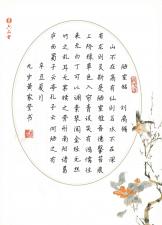 陋室铭 刘禹锡
山不在高有仙则名水不在深
有龙则灵斯是陋室惟吾德馨苔痕
上阶绿草色入帘青谈笑有鸿儒往
来无白丁可以调素琴阅金经无丝
竹之乱耳无案牍之劳形南阳诸葛
庐西蜀子云亭孔子云何陋之有
辛丑夏月